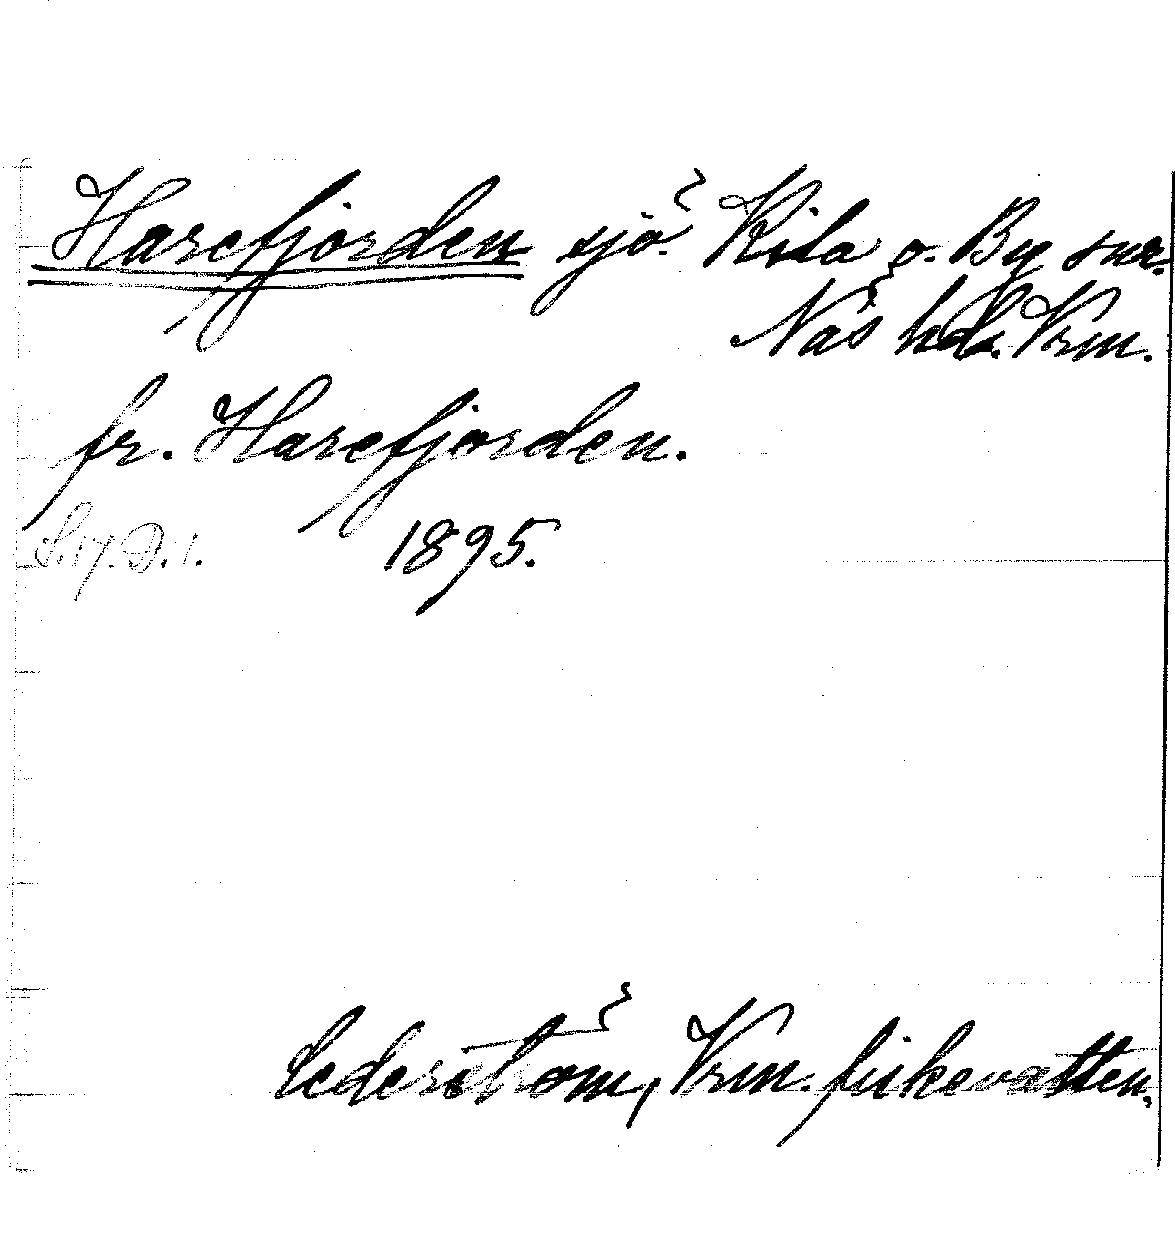 Harefjorden sjö. Kila o. By snr.
Näs hd. Vrm.
fr. Harefjorden.
S.17.D.1. 1895.
Cederström, Vrm. fiskevatten.